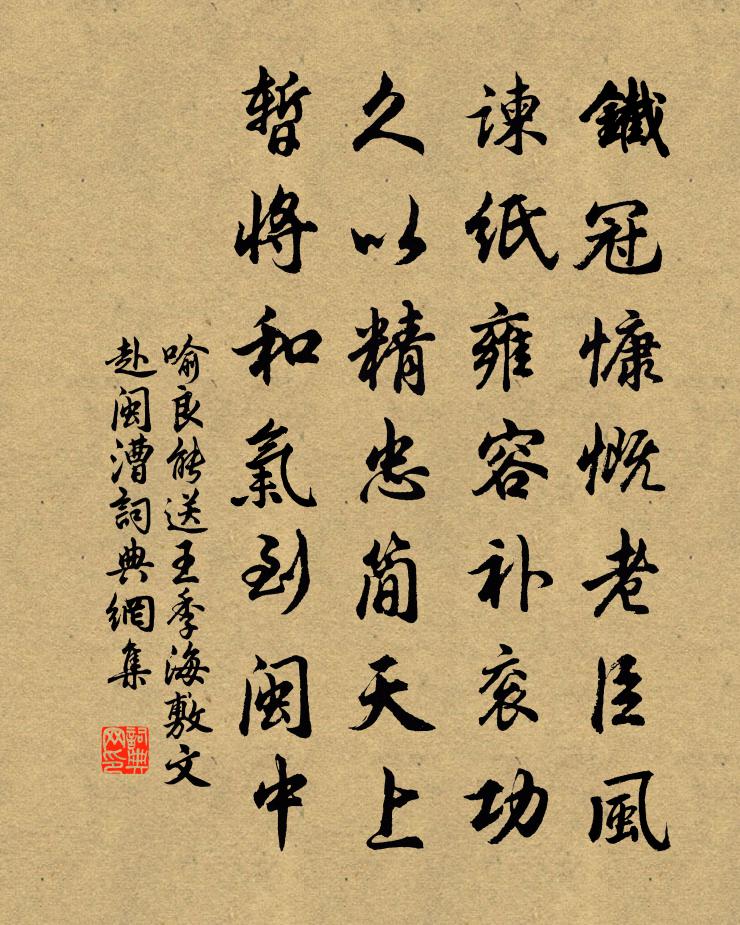 鐵冠慷慨老臣風
諫紙雍容补衮功
久以精忠简天上
暫將和氣到閩中
喻良能送王季海敷文
赴閩漕詞典網集
詞典网印